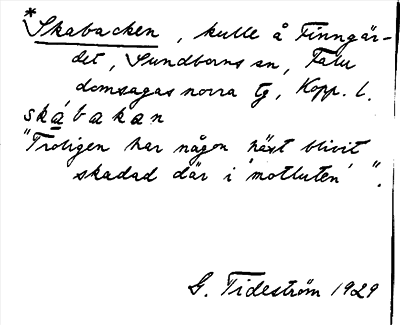 *Skabacken, kulle å Finngär-
det, Sundborns sn, Falu
domsagas norra tg, Kopp. l.
skàbakan
"Troligen har någon häst blivit
skadad där i 'motluten'".
G. Tideström 1929